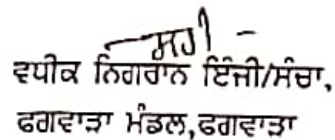 ਸਹੀ -
ਵਧੀਕ ਨਿਗਰਾਨ ਇੰਜੀ/ਸੰਚਾ,
ਫਗਵਾੜਾ ਮੰਡਲ,ਫਗਵਾੜਾ